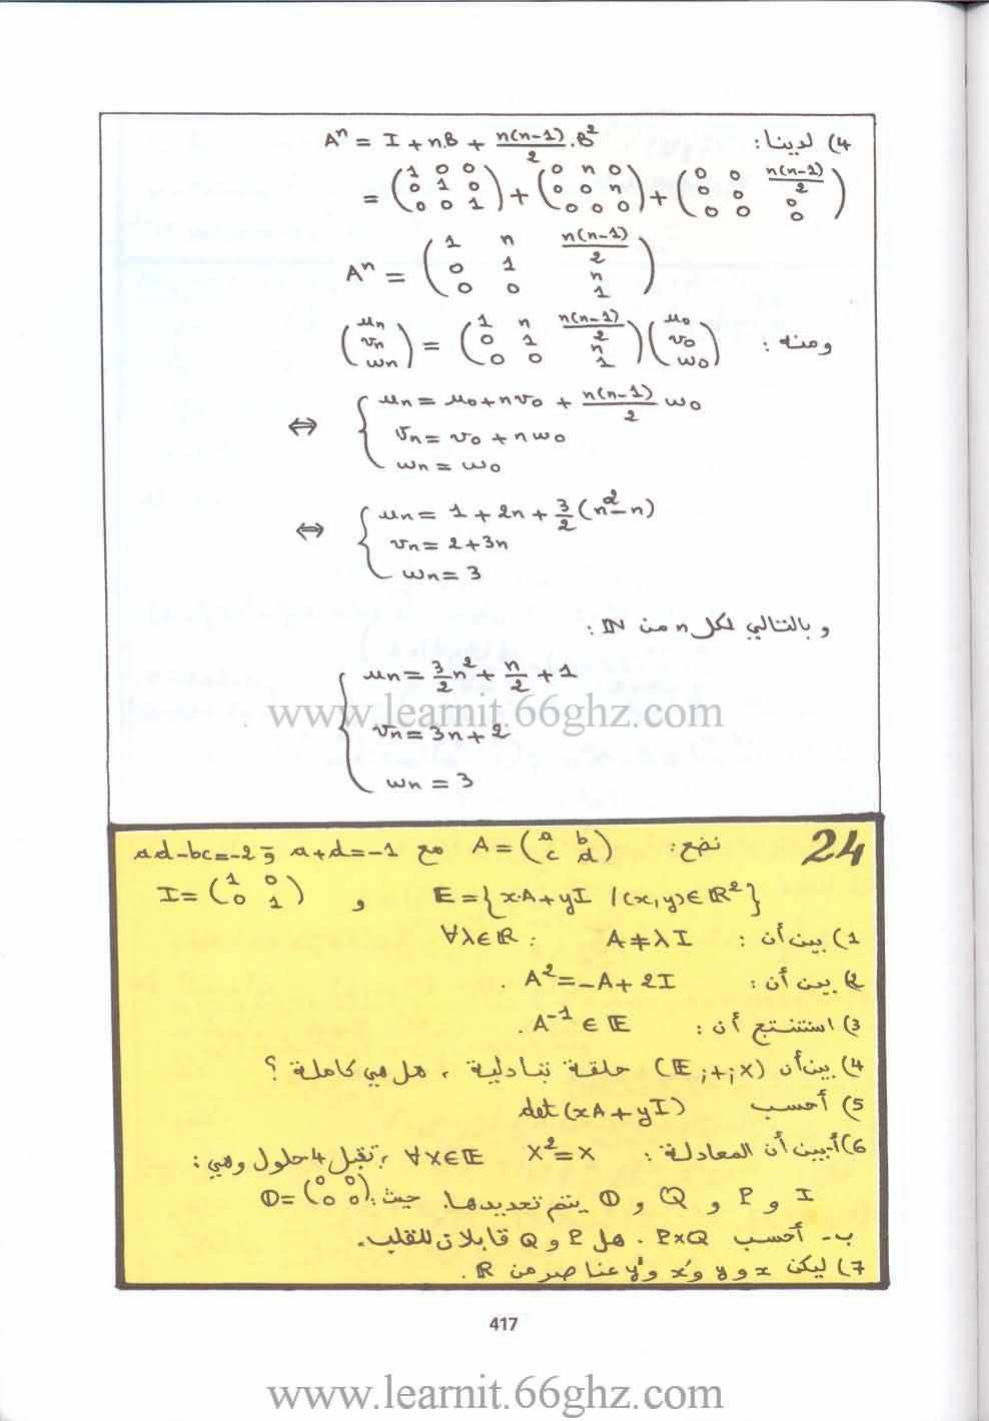 4) لدينا: Aⁿ = I + n.B + n(n-1)/2 . B²
= (1 0 0 ; 0 1 0 ; 0 0 1) + (0 n 0 ; 0 0 n ; 0 0 0) + (0 0 n(n-1)/2 ; 0 0 0 ; 0 0 0)
Aⁿ = (1 n n(n-1)/2 ; 0 1 n ; 0 0 1)
ومنه : (uₙ ; vₙ ; wₙ) = (1 n n(n-1)/2 ; 0 1 n ; 0 0 1)(u₀ ; v₀ ; w₀)
⇔ { uₙ = u₀ + nv₀ + n(n-1)/2 w₀
vₙ = v₀ + nw₀
wₙ = w₀
⇔ { uₙ = 1 + 2n + 3/2 (n² - n)
vₙ = 2 + 3n
wₙ = 3
و بالتالي لكل n من ℕ :
{ uₙ = 3/2 n² + n/2 + 1
www.learnit.66ghz.com
vₙ = 3n + 2
wₙ = 3
24 نضع: A = (a b ; c d) مع a+d=-1 و ad-bc=-2
E = {x.A + yI / (x,y) ∈ ℝ²} و I = (1 0 ; 0 1)
1) بين أن : A ≠ λI : ∀λ∈ℝ
2) بين أن : A² = -A + 2I .
3) استنتج أن : A⁻¹ ∈ E .
4) بين أن (E ; + ; ×) حلقة تبادلية ، هل هي كاملة ؟
5) أحسب det(xA + yI)
6) أ- بين أن المعادلة : X² = X ∀X∈E ، تقبل 4 حلول وهي :
I و P و Q و O يتم تحديدها. حيث : O = (0 0 ; 0 0)
ب- أحسب P×Q . هل P و Q قابلان للقلب.
7) ليكن x و y و x' و y' عناصر من ℝ .
417
www.learnit.66ghz.com